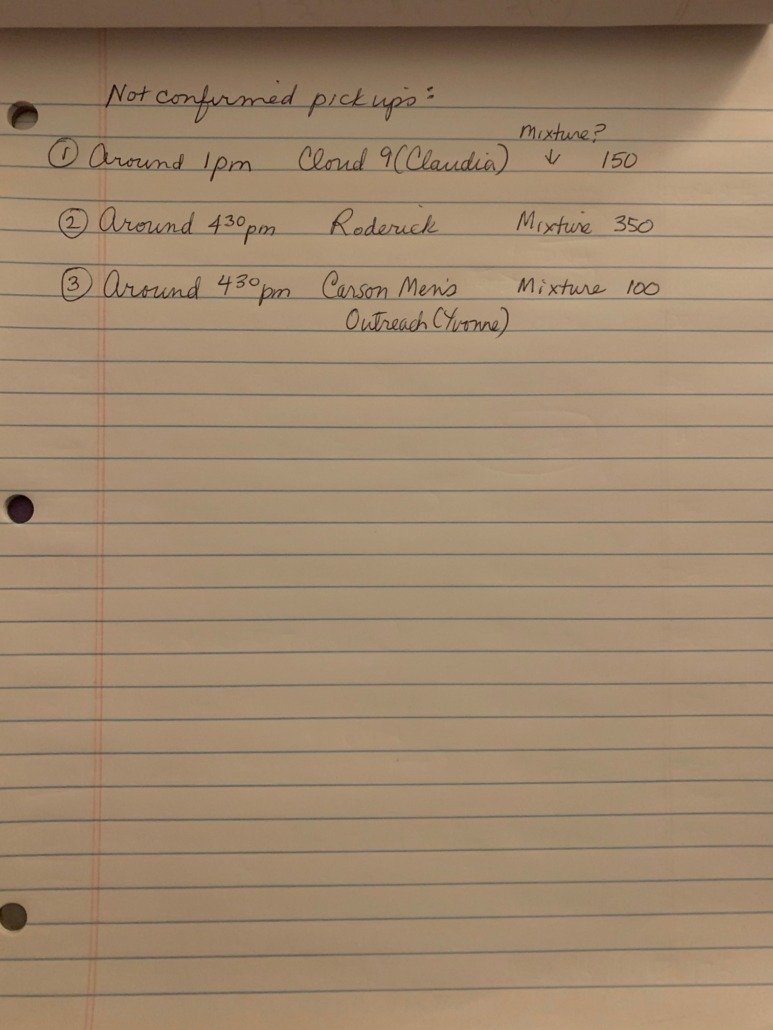 Not confirmed pick ups:
Mixture?
① Around 1pm Cloud 9 (Claudia) ↓ 150
② Around 430pm Roderick Mixture 350
③ Around 430pm Carson Men's Mixture 100
Outreach (Yvonne)